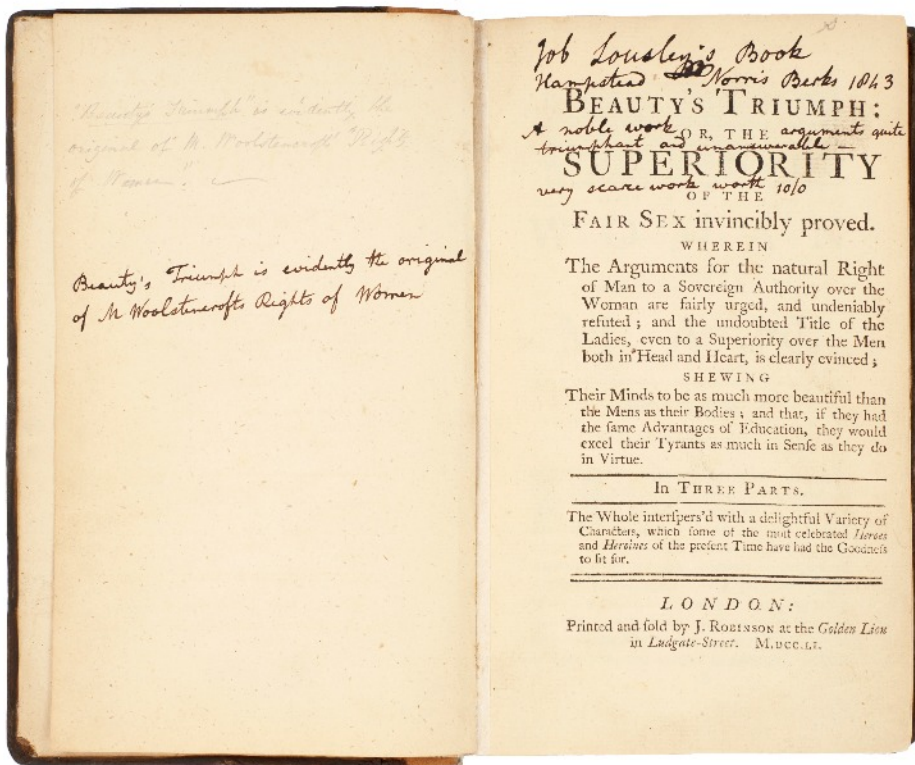 "Beauty's Triumph" is evidently the
original of M. Woolstencroft "Rights
of Women."
Beauty's Triumph is evidently the original
of M Woolstencrofts Rights of Women
Job Lousley's Book
Hampstead Norris Berks 1843
BEAUTY'S TRIUMPH:
A noble work arguments quite
OR, THE
triumphant and unanswerable —
SUPERIORITY
very scarce work worth 10/0
OF THE
FAIR SEX invincibly proved.
WHEREIN
The Arguments for the natural Right
of Man to a Sovereign Authority over the
Woman are fairly urged, and undeniably
refuted; and the undoubted Title of the
Ladies, even to a Superiority over the Men
both in Head and Heart, is clearly evinced;
SHEWING
Their Minds to be as much more beautiful than
the Mens as their Bodies; and that, if they had
the ſame Advantages of Education, they would
excel their Tyrants as much in Senſe as they do
in Virtue.
In THREE PARTS.
The Whole interſpers'd with a delightful Variety of
Characters, which ſome of the moſt celebrated Heroes
and Heroines of the preſent Time have had the Goodneſs
to ſit for.
LONDON:
Printed and ſold by J. ROBINSON at the Golden Lion
in Ludgate-Street. M.DCC.LI.